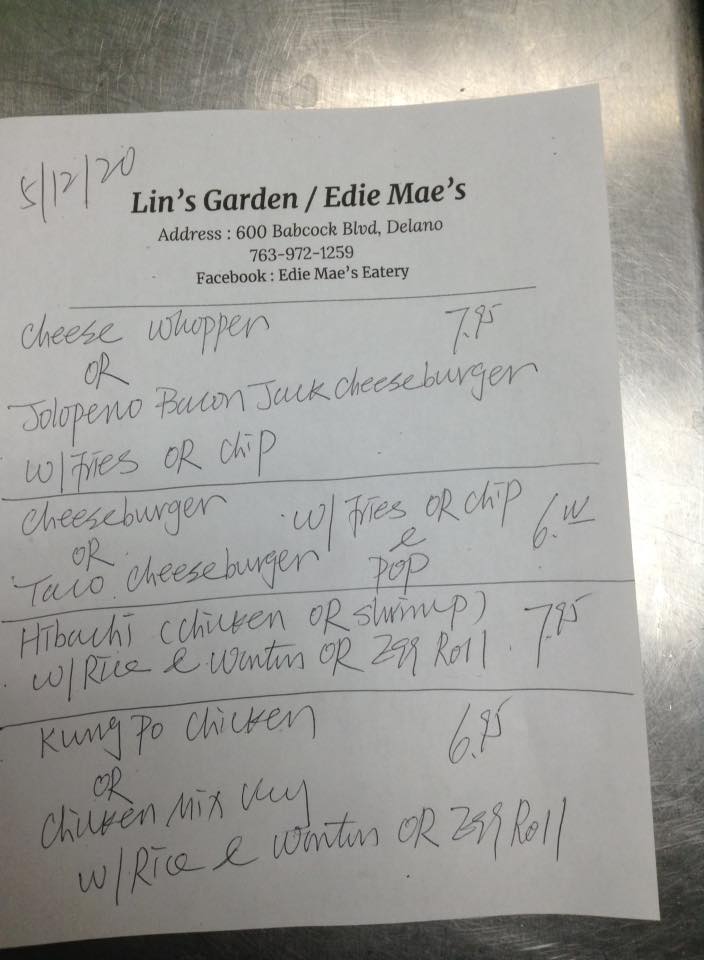 5/12/20
Lin's Garden / Edie Mae's
Address : 600 Babcock Blvd, Delano
763-972-1259
Facebook : Edie Mae's Eatery
Cheese Whopper 7.95
OR
Jolopeno Bacon Jack cheeseburger
w/ Fries OR Chip
Cheeseburger w/ Fries OR Chip 6.00
OR &
Taco Cheeseburger POP
Hibachi (Chicken OR Shrimp) 7.95
w/ Rice & Wontons OR Egg Roll
Kung Po Chicken 6.95
OR
Chicken Mix Veg
w/ Rice & Wontons OR Egg Roll